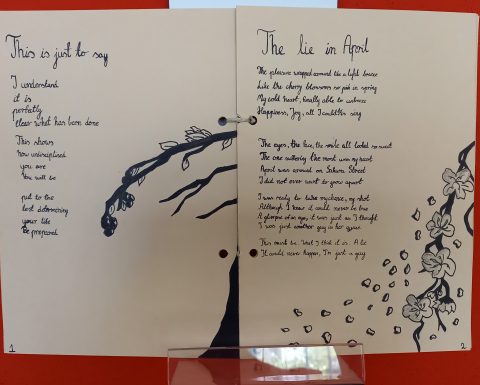 This is just to say
I understand
it is
perfectly
clear what has been done
This shows
how undisciplined
you are
You will be
put to the
test determining
your life
Be prepared
1
The lie in April
The pleasure wrapped around like a
Like the cherry blossoms so pink in spring
My cold heart, finally able to embrace
Happiness, Joy, all I could sing
The eyes, the face, the smile all looked so sweet
The one withering the most was my heart
April was around on Sakura Street
I did not ever want to grow apart
I was ready to take my chance, my shot
Although I knew it could never be true
A glimpse of an eye, it was just as I thought
I was just another guy in her
This must be. What I that it is. A lie
It could never happen, I'm just a guy
2